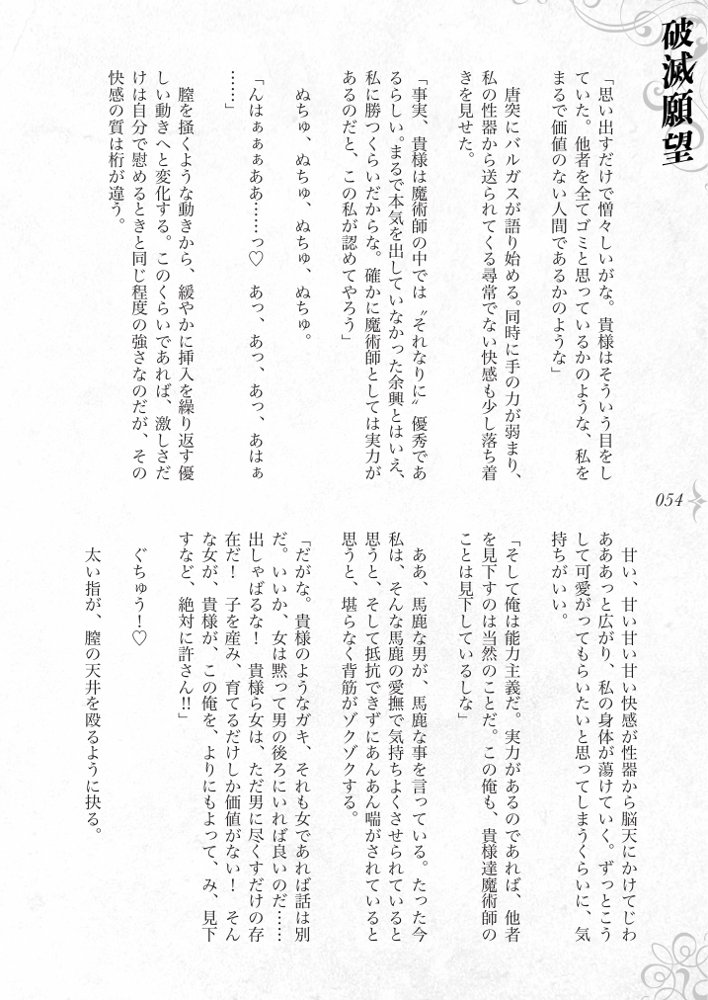 破滅願望
「思い出すだけで憎々しいがな。貴様はそういう目をし
ていた。他者を全てゴミと思っているかのような、私を
まるで価値のない人間であるかのような」
唐突にバルガスが語り始める。同時に手の力が弱まり、
私の性器から送られてくる尋常でない快感も少し落ち着
きを見せた。
「事実、貴様は魔術師の中では〝それなりに〟優秀であ
るらしい。まるで本気を出していなかった余興とはいえ、
私に勝つくらいだからな。確かに魔術師としては実力が
あるのだと、この私が認めてやろう」
ぬちゅ、ぬちゅ、ぬちゅ、ぬちゅ。
「んはぁぁぁああ……っ♡　あっ、あっ、あっ、あはぁ
……」
膣を掻くような動きから、緩やかに挿入を繰り返す優
しい動きへと変化する。このくらいであれば、激しさだ
けは自分で慰めるときと同じ程度の強さなのだが、その
快感の質は桁が違う。
054
甘い、甘い甘い甘い快感が性器から脳天にかけてじわ
あああっと広がり、私の身体が蕩けていく。ずっとこう
して可愛がってもらいたいと思ってしまうくらいに、気
持ちがいい。
「そして俺は能力主義だ。実力があるのであれば、他者
を見下すのは当然のことだ。この俺も、貴様達魔術師の
ことは見下しているしな」
ああ、馬鹿な男が、馬鹿な事を言っている。たった今
私は、そんな馬鹿の愛撫で気持ちよくさせられていると
思うと、そして抵抗できずにあんあん喘がされていると
思うと、堪らなく背筋がゾクゾクする。
「だがな。貴様のようなガキ、それも女であれば話は別
だ。いいか、女は黙って男の後ろにいれば良いのだ……
出しゃばるな！　貴様ら女は、ただ男に尽くすだけの存
在だ！　子を産み、育てるだけしか価値がない！　そん
な女が、貴様が、この俺を、よりにもよって、み、見下
すなど、絶対に許さん!!」
ぐちゅう！♡
太い指が、膣の天井を殴るように抉る。